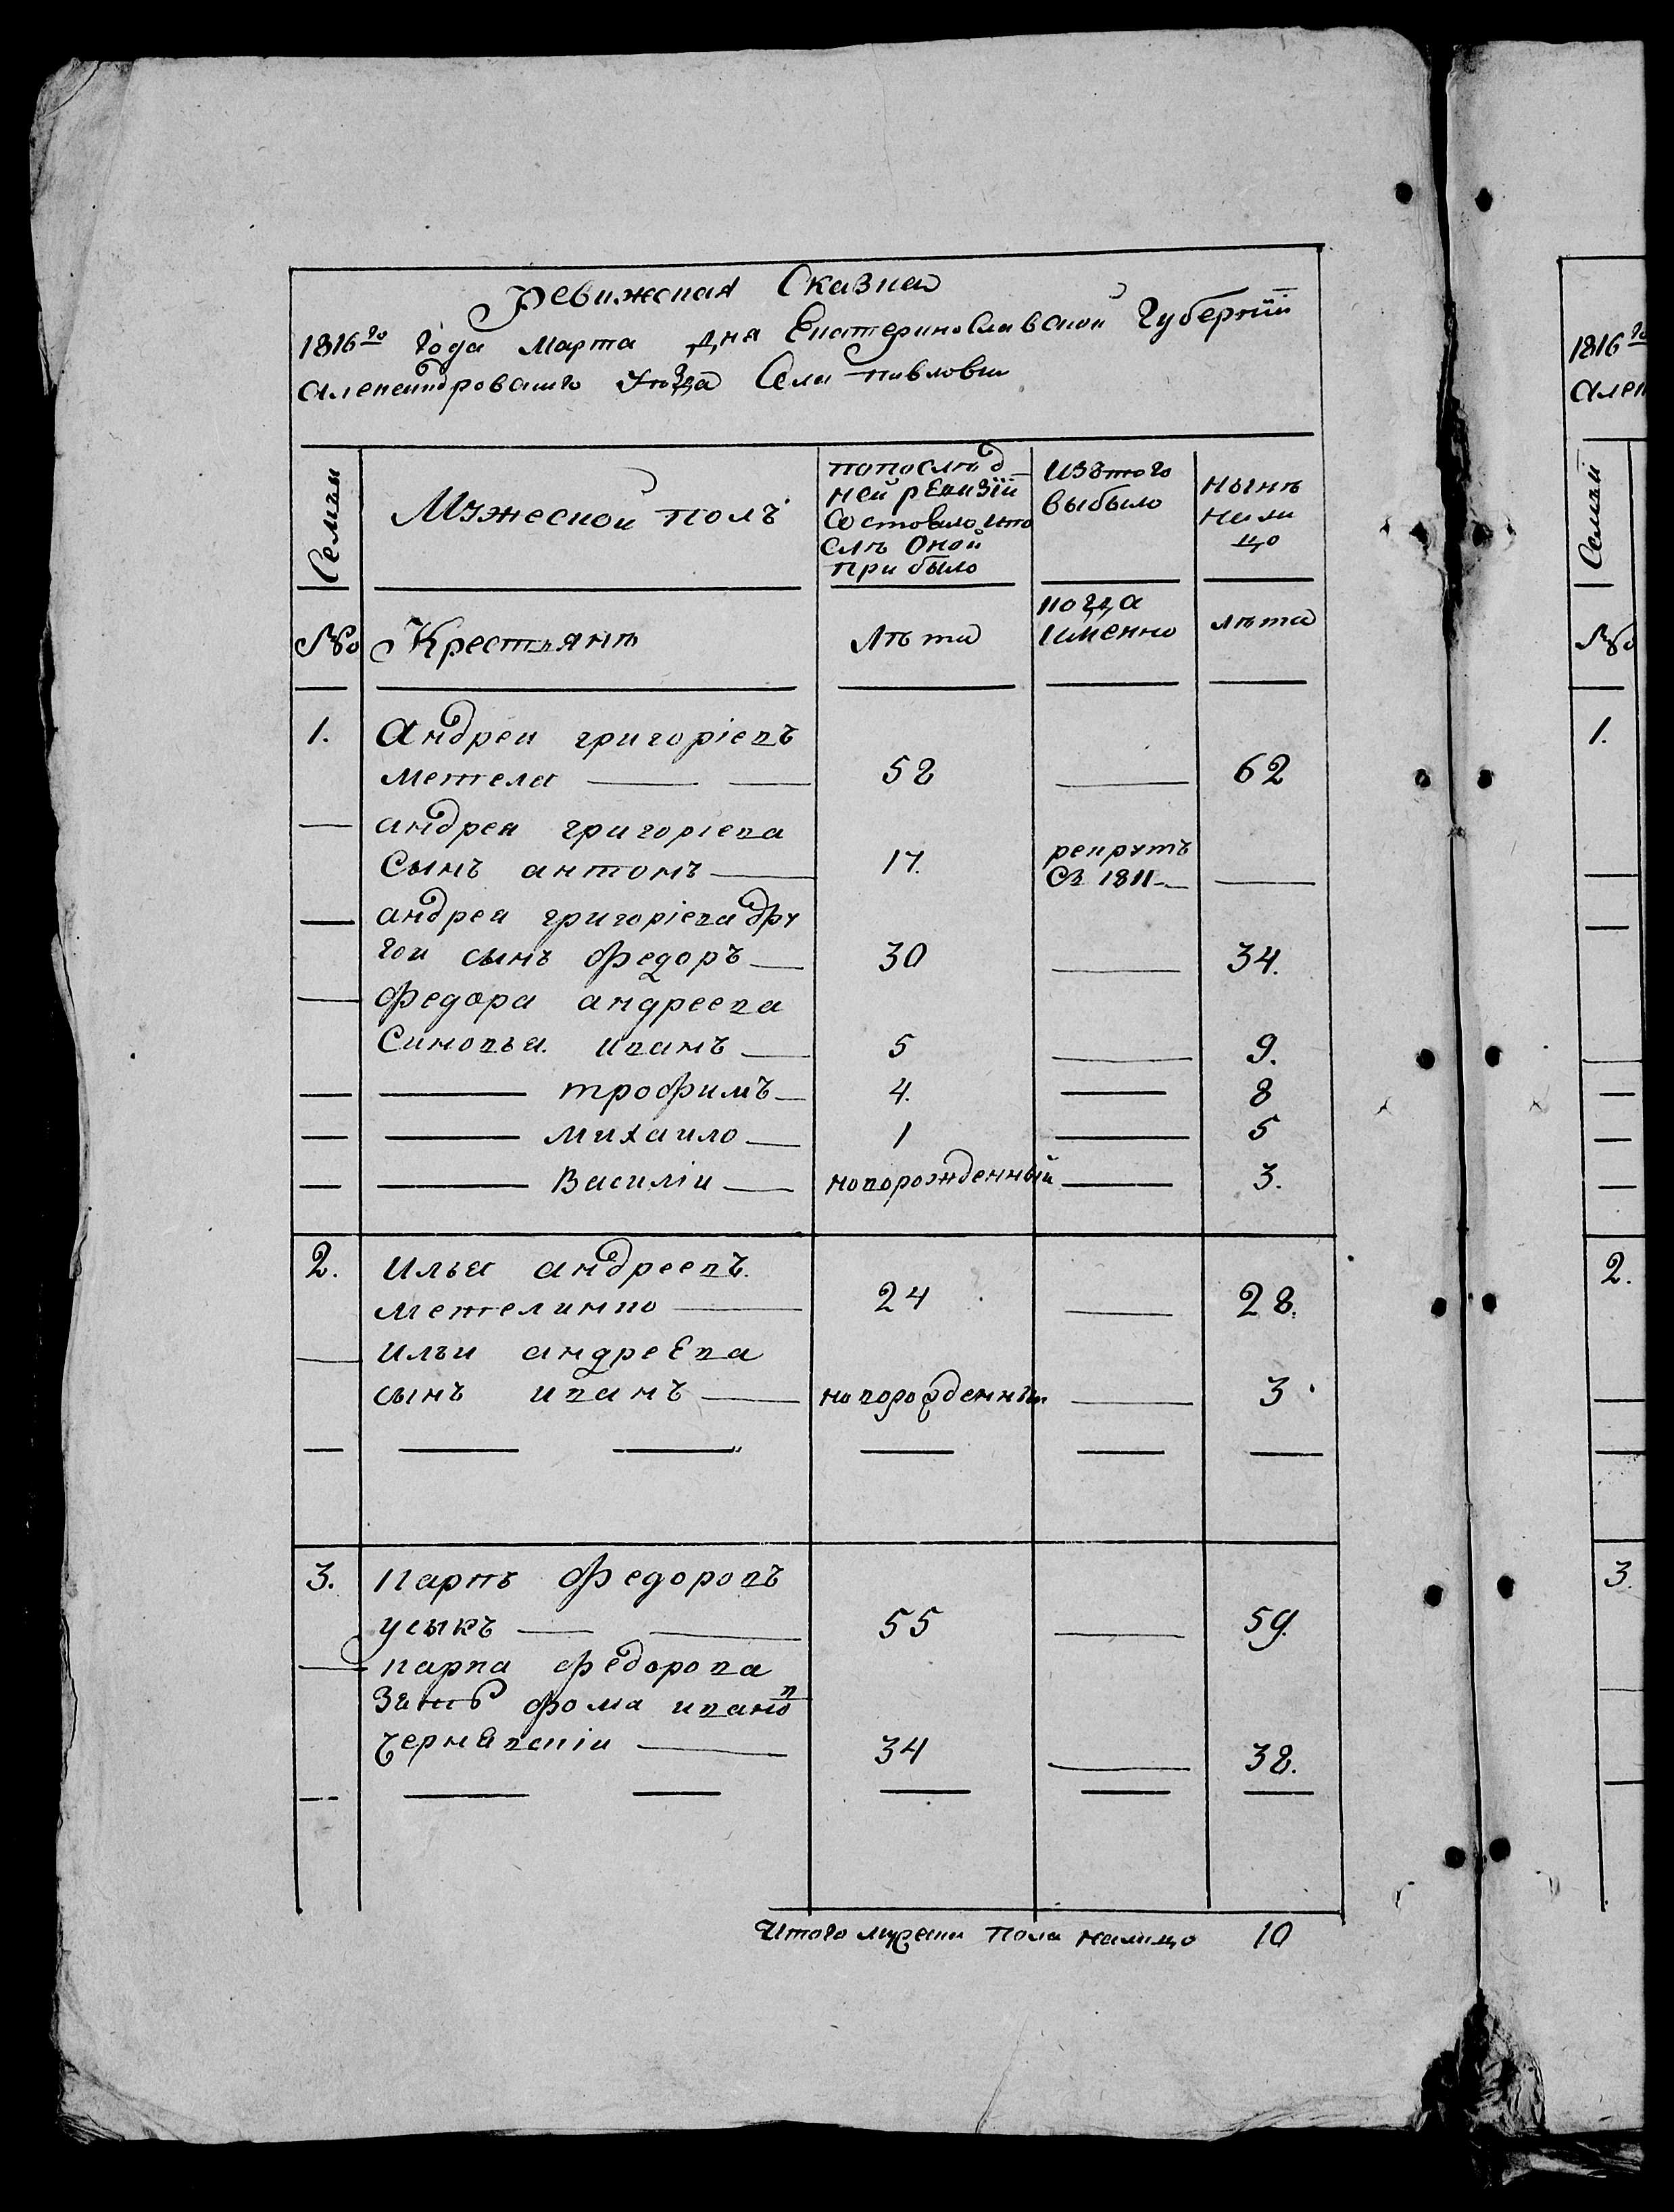 Ревижская Сказка
1816го Года Марта дня Екатеринославской Губернїи
Александровскаго Уѣзда Села Павловки
Семьи
Мужескои полъ
попослѣд
ней ревизїи
состояло ипо
слѣ Оной
прибыло
Изътого
выбыло
нынѣ
нали
цо
№
Крестьянѣ
Лѣта
когда
имѣнно
лѣта
1. Андреи григоріевъ
метела 58 62
андрея григоріева
Сынъ антонъ 17. рекрутъ
Съ 1811
андрея григоріева дру
гои сынъ федоръ 30 34.
федора андреева
Синовья. иванъ 5 9.
трофимъ 4. 8
михаило 1 5
Василіи новорожденный 3.
2. Илья андреевъ
метелинко 24 28.
ильи андреева
сынъ иванъ новорожденныи 3
3. карпъ федоровъ
усыкъ 55 59.
карпа федорова
Зять фома ивановъ
чернявскіи 34 38.
Итого мужеска пола налицо 10
1816го
Алек
Семьи
№
1.
2.
3.